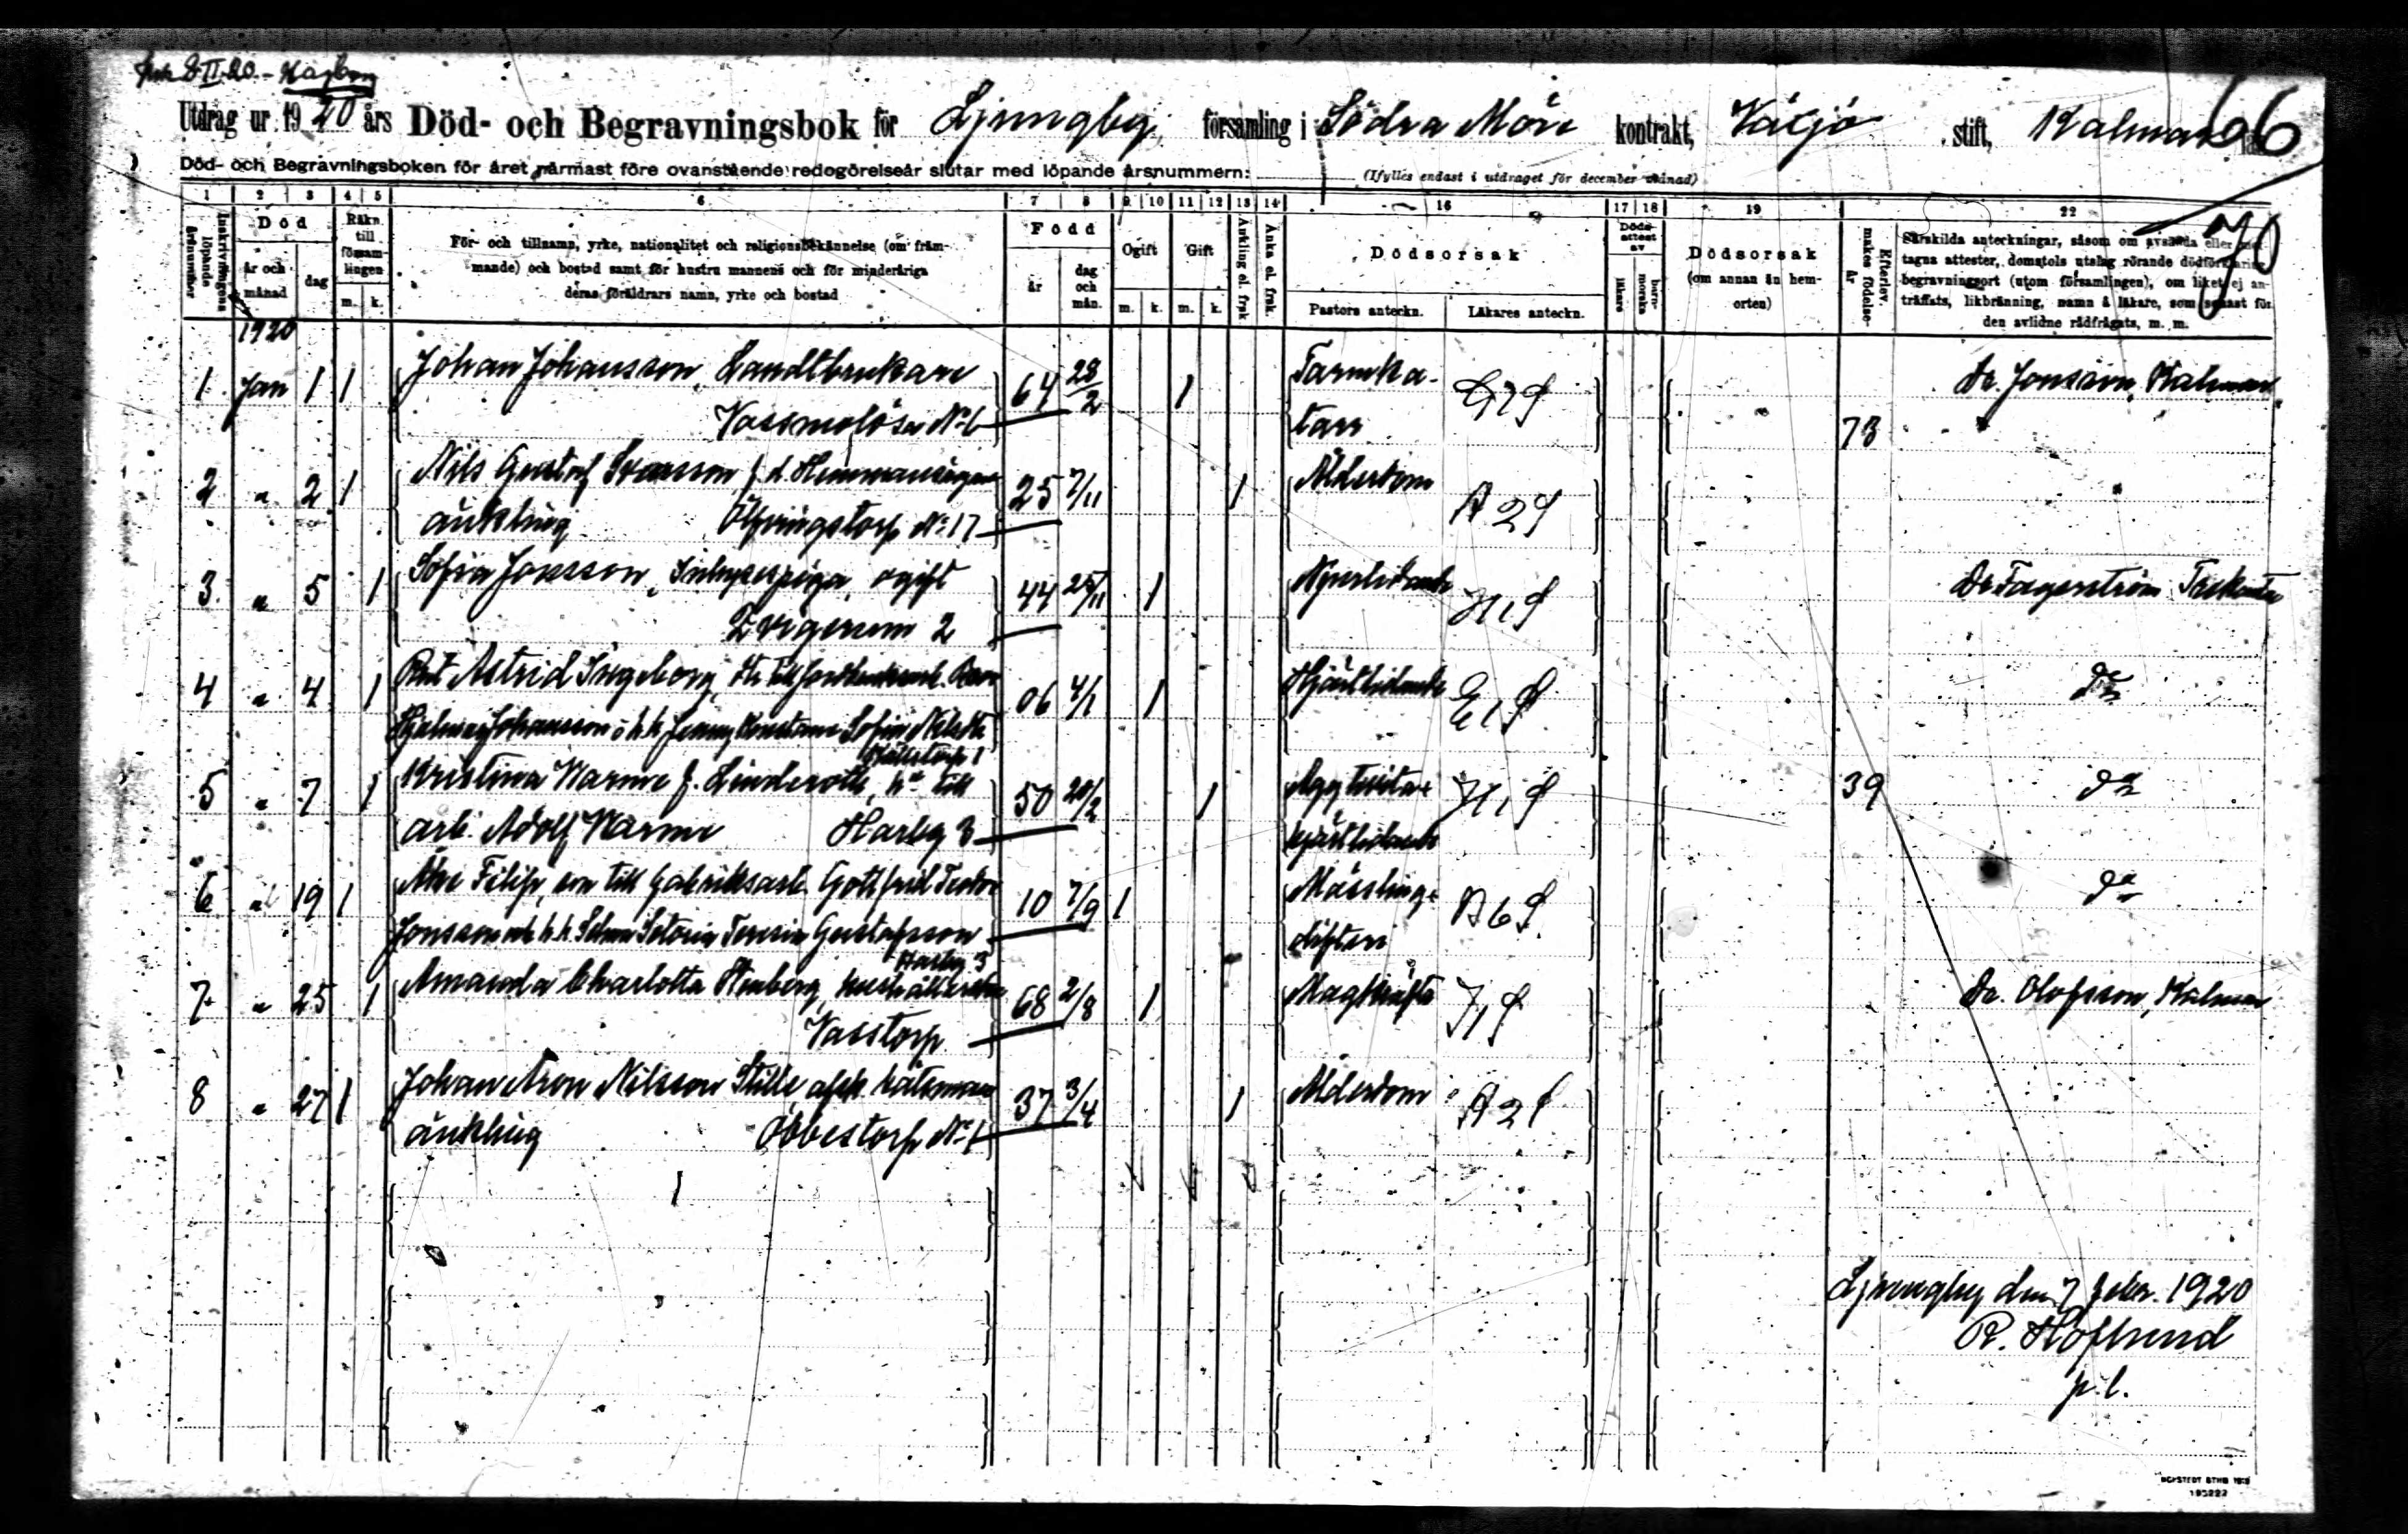 8-II-20.
Utdrag ur 1920 års Död- och Begravningsbok för Ljungby församling i Södra Möre kontrakt, Växjö stift, Kalmar län
66
Död- och Begravningsboken för året närmast före ovanstående redogörelseår slutar med löpande årsnummern: (Ifylles endast i utdraget för december månad)
70
1 2 3 4 5 6 7 8 9 10 11 12 13 14 16 17 18 19 22
Inskrivningens löpande årsnummer
Död
år och månad
dag
Räkn. till församlingen
m. k.
För- och tillnamn, yrke, nationalitet och religionsbekännelse (om främmande) och bostad samt för hustru mannens och för minderåriga
deras föräldrars namn, yrke och bostad
Född
år
dag och mån.
Ogift
m. k.
Gift
m. k.
Änkling el. frsk.
Änka el. frsk.
Dödsorsak
Pastors anteckn. Läkares anteckn.
Dödsattest av
läkare
barnmorska
Dödsorsak
(om annan än hemorten)
Efterlev. makes födelseår
Särskilda anteckningar, såsom om avsända eller mottagna attester, domstols utslag rörande dödförklaring,
begravningsort (utom församlingen), om liket ej anträffats, likbränning, namn å läkare, som senast för
den avlidne rådfrågats, m. m.
1920
1 Jan 1 1 Johan Johansson, Landtbrukare 64 28/2 1 Tarmka- G19 Dr. Jonsson, Kalmar
Vassmolösa No 6 tarr 73
2 " 2 1 Nils Gustaf Svensson f.d. Hemmansägare 25 7/11 1 Ålderdom A29
änkling No 17
3 " 5 1 Sofia Jonsson, ogift 44 25/11 1 H19 Dr Fagerström
2
4 " 4 1 Rut Astrid Ingeborg, 06 4/1 1 Hjärtlidande E19 d:o
Hjalmar Johansson o h. h. Jenny Konstans Sofia
5 " 7 1 Kristina Warme f. Linderoth, h:u till 50 20/2 1 H19 39 d:o
arb. Adolf Warme Harby 3 hjärtlidande
6 " 19 1 Åke Filip, son till fabriksarb. Gottfrid Teodor 10 7/9 1 Mässling + A69 d:o
Jonsson och h. h. Selma Gustafsson difteri
Harby 3
7 " 25 1 Amanda Charlotta Stenberg, hushållerska 68 2/8 1 Magkräfta Dr. Olofsson, Kalmar
Vasstorp
8 " 27 1 Johan Aron Nilsson Stille afsk. båtsman 37 3/4 1 Ålderdom A29
änkling Öbbestorp No 1
Ljungby den 7 febr. 1920
R. Hoflund
p. l.